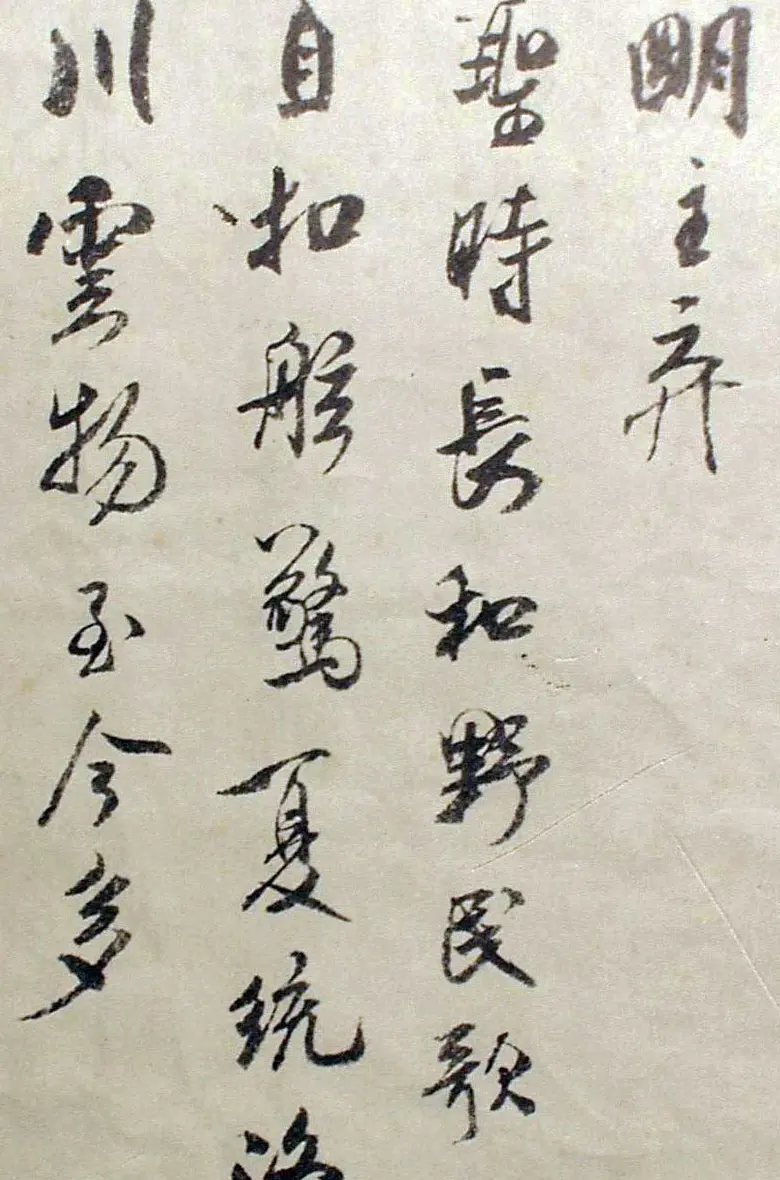 明主弃
聖時長和野民歌
自扣舷驚夏統洛
川雲物至今多